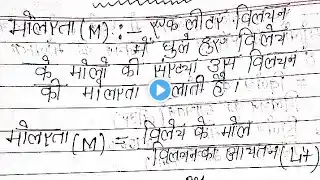 मोलरता (M) :- एक लीटर विलयन
में घुले हुए विलेय
के मोलो की संख्या उस विलयन
की मोलरता लाती है।
मोलरता (M) = विलेय के मोल
विलयन का आयतन (Lit)